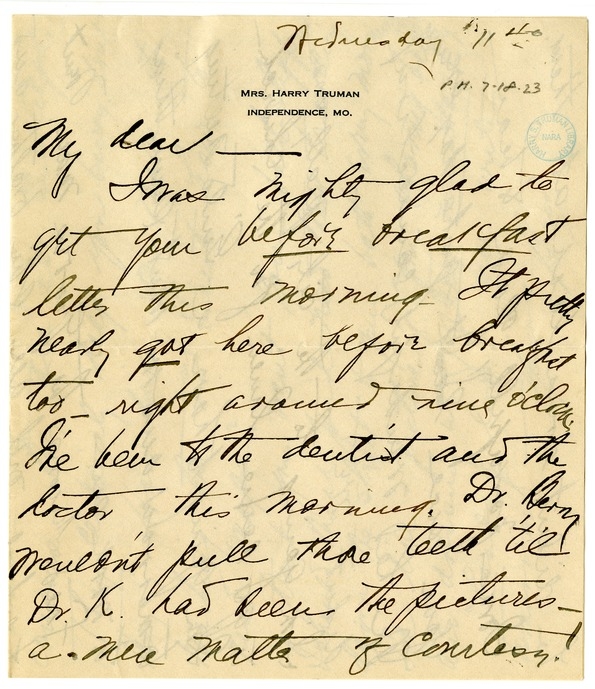 Wednesday 11 40
P.M. 7-18-23
MRS. HARRY TRUMAN
INDEPENDENCE, MO.
HARRY S. TRUMAN LIBRARY
NARA
My dear —
I was mighty glad to
get your before breakfast
letter this morning. It pretty
nearly got here before breakfast
too - right around nine o'clock.
I've been to the dentist and the
doctor this morning. Dr. Berry
wouldn't pull those teeth 'til
Dr. K. had seen the pictures -
a mere matter of courtesy!